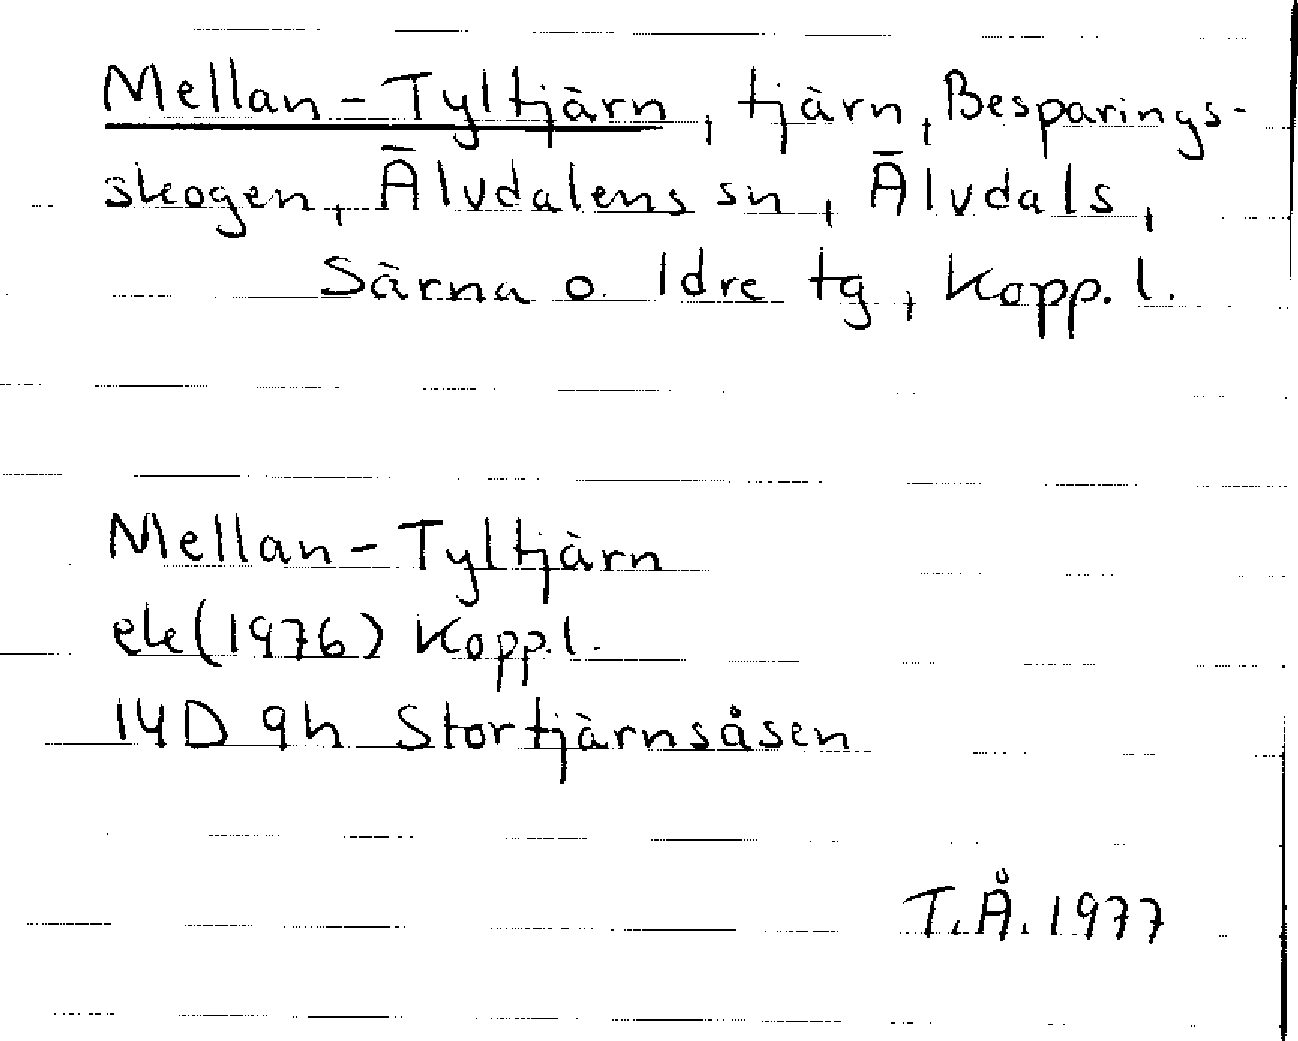 Mellan-Tyltjärn, tjärn, Besparings-
skogen, Älvdalens sn, Älvdals,
Särna o. Idre tg, Kopp. l.
Mellan-Tyltjärn
ek (1976) Kopp.l.
14D 9h Stortjärnsåsen
T.Å. 1977